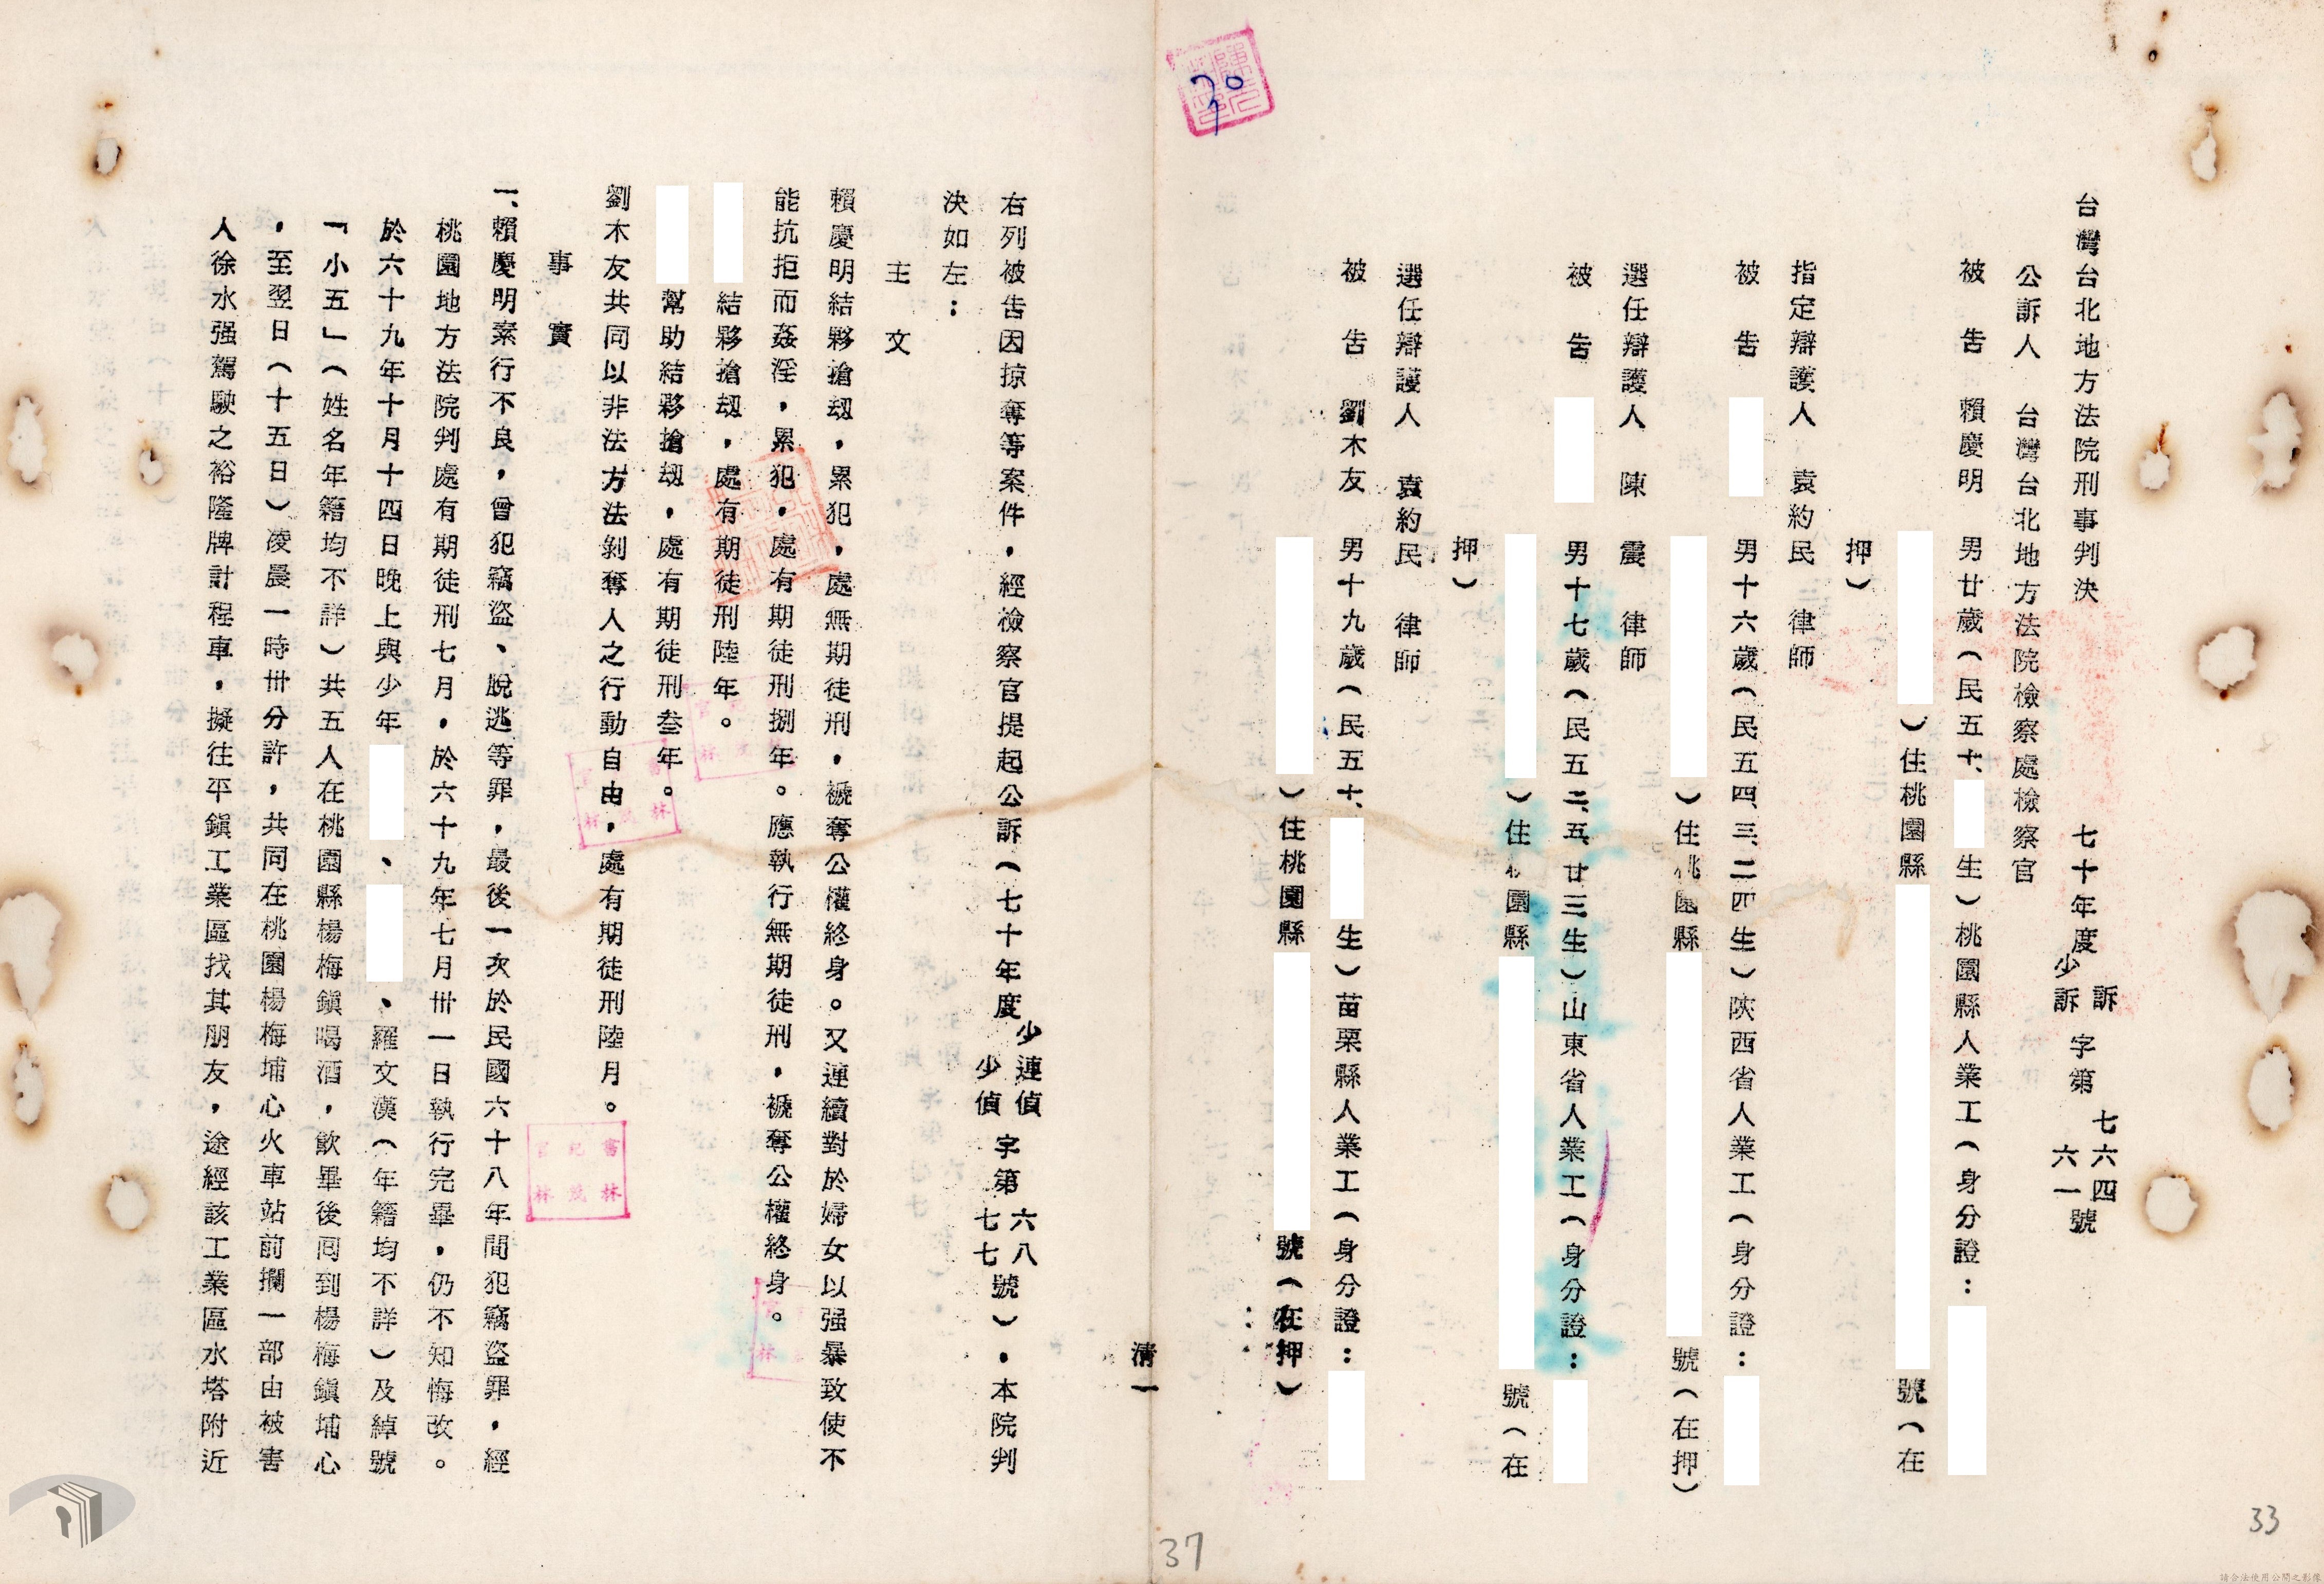 台灣台北地方法院刑事判決　七十年度　訴　少訴　字第　七六四　六一　號
公訴人　台灣台北地方法院檢察處檢察官
被　告　賴慶明　男廿歲（民五十、生）桃園縣人業工（身分證：
）住桃園縣　號（在
押）
指定辯護人　袁約民　律師
被　告　男十六歲（民五四、三、二四生）陝西省人業工（身分證：
）住桃園縣　號（在押）
選任辯護人　陳　震　律師
被　告　男十七歲（民五二、五、廿三生）山東省人業工（身分證：
）住桃園縣　號（在
押）
選任辯護人　袁約民　律師
被　告　劉木友　男十九歲（民五十、生）苗栗縣人業工（身分證：
）住桃園縣　號（在押）
清一
右列被告因掠奪等案件，經檢察官提起公訴（七十年度　少連偵　少偵　字第　六八　七七　號），本院判
決如左：
主　文
賴慶明結夥搶劫，累犯，處無期徒刑，褫奪公權終身。又連續對於婦女以强暴致使不
能抗拒而姦淫，累犯，處有期徒刑捌年。應執行無期徒刑，褫奪公權終身。
結夥搶劫，處有期徒刑陸年。
幫助結夥搶劫，處有期徒刑叁年。
劉木友共同以非法方法剝奪人之行動自由，處有期徒刑陸月。
事　實
一、賴慶明素行不良，曾犯竊盜、脫逃等罪，最後一次於民國六十八年間犯竊盜罪，經
桃園地方法院判處有期徒刑七月，於六十九年七月卅一日執行完畢，仍不知悔改。
於六十九年十月十四日晚上與少年、、羅文漢（年籍均不詳）及綽號
「小五」（姓名年籍均不詳）共五人在桃園縣楊梅鎮喝酒，飲畢後回到楊梅鎮埔心
，至翌日（十五日）凌晨一時卅分許，共同在桃園楊梅埔心火車站前攔一部由被害
人徐水强駕駛之裕隆牌計程車，擬往平鎮工業區找其朋友，途經該工業區水塔附近
37
33
請合法使用公開之影像